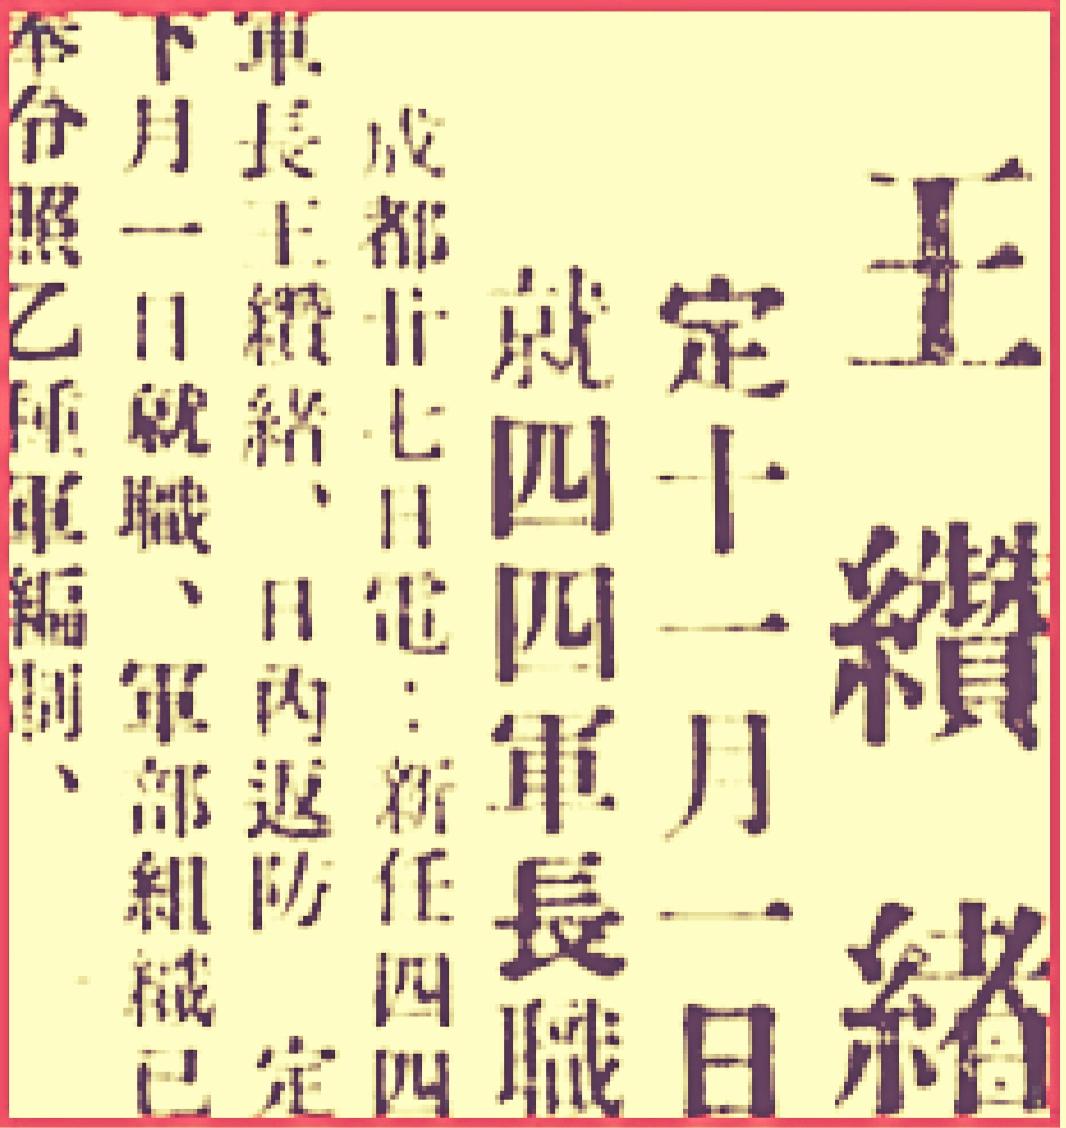 王纘緒
定十一月一日
就四四軍長職
成都廿七日電：新任四四
軍長王纘緒、日內返防定
下月一日就職、軍部組織已
奉令照乙種軍編制、